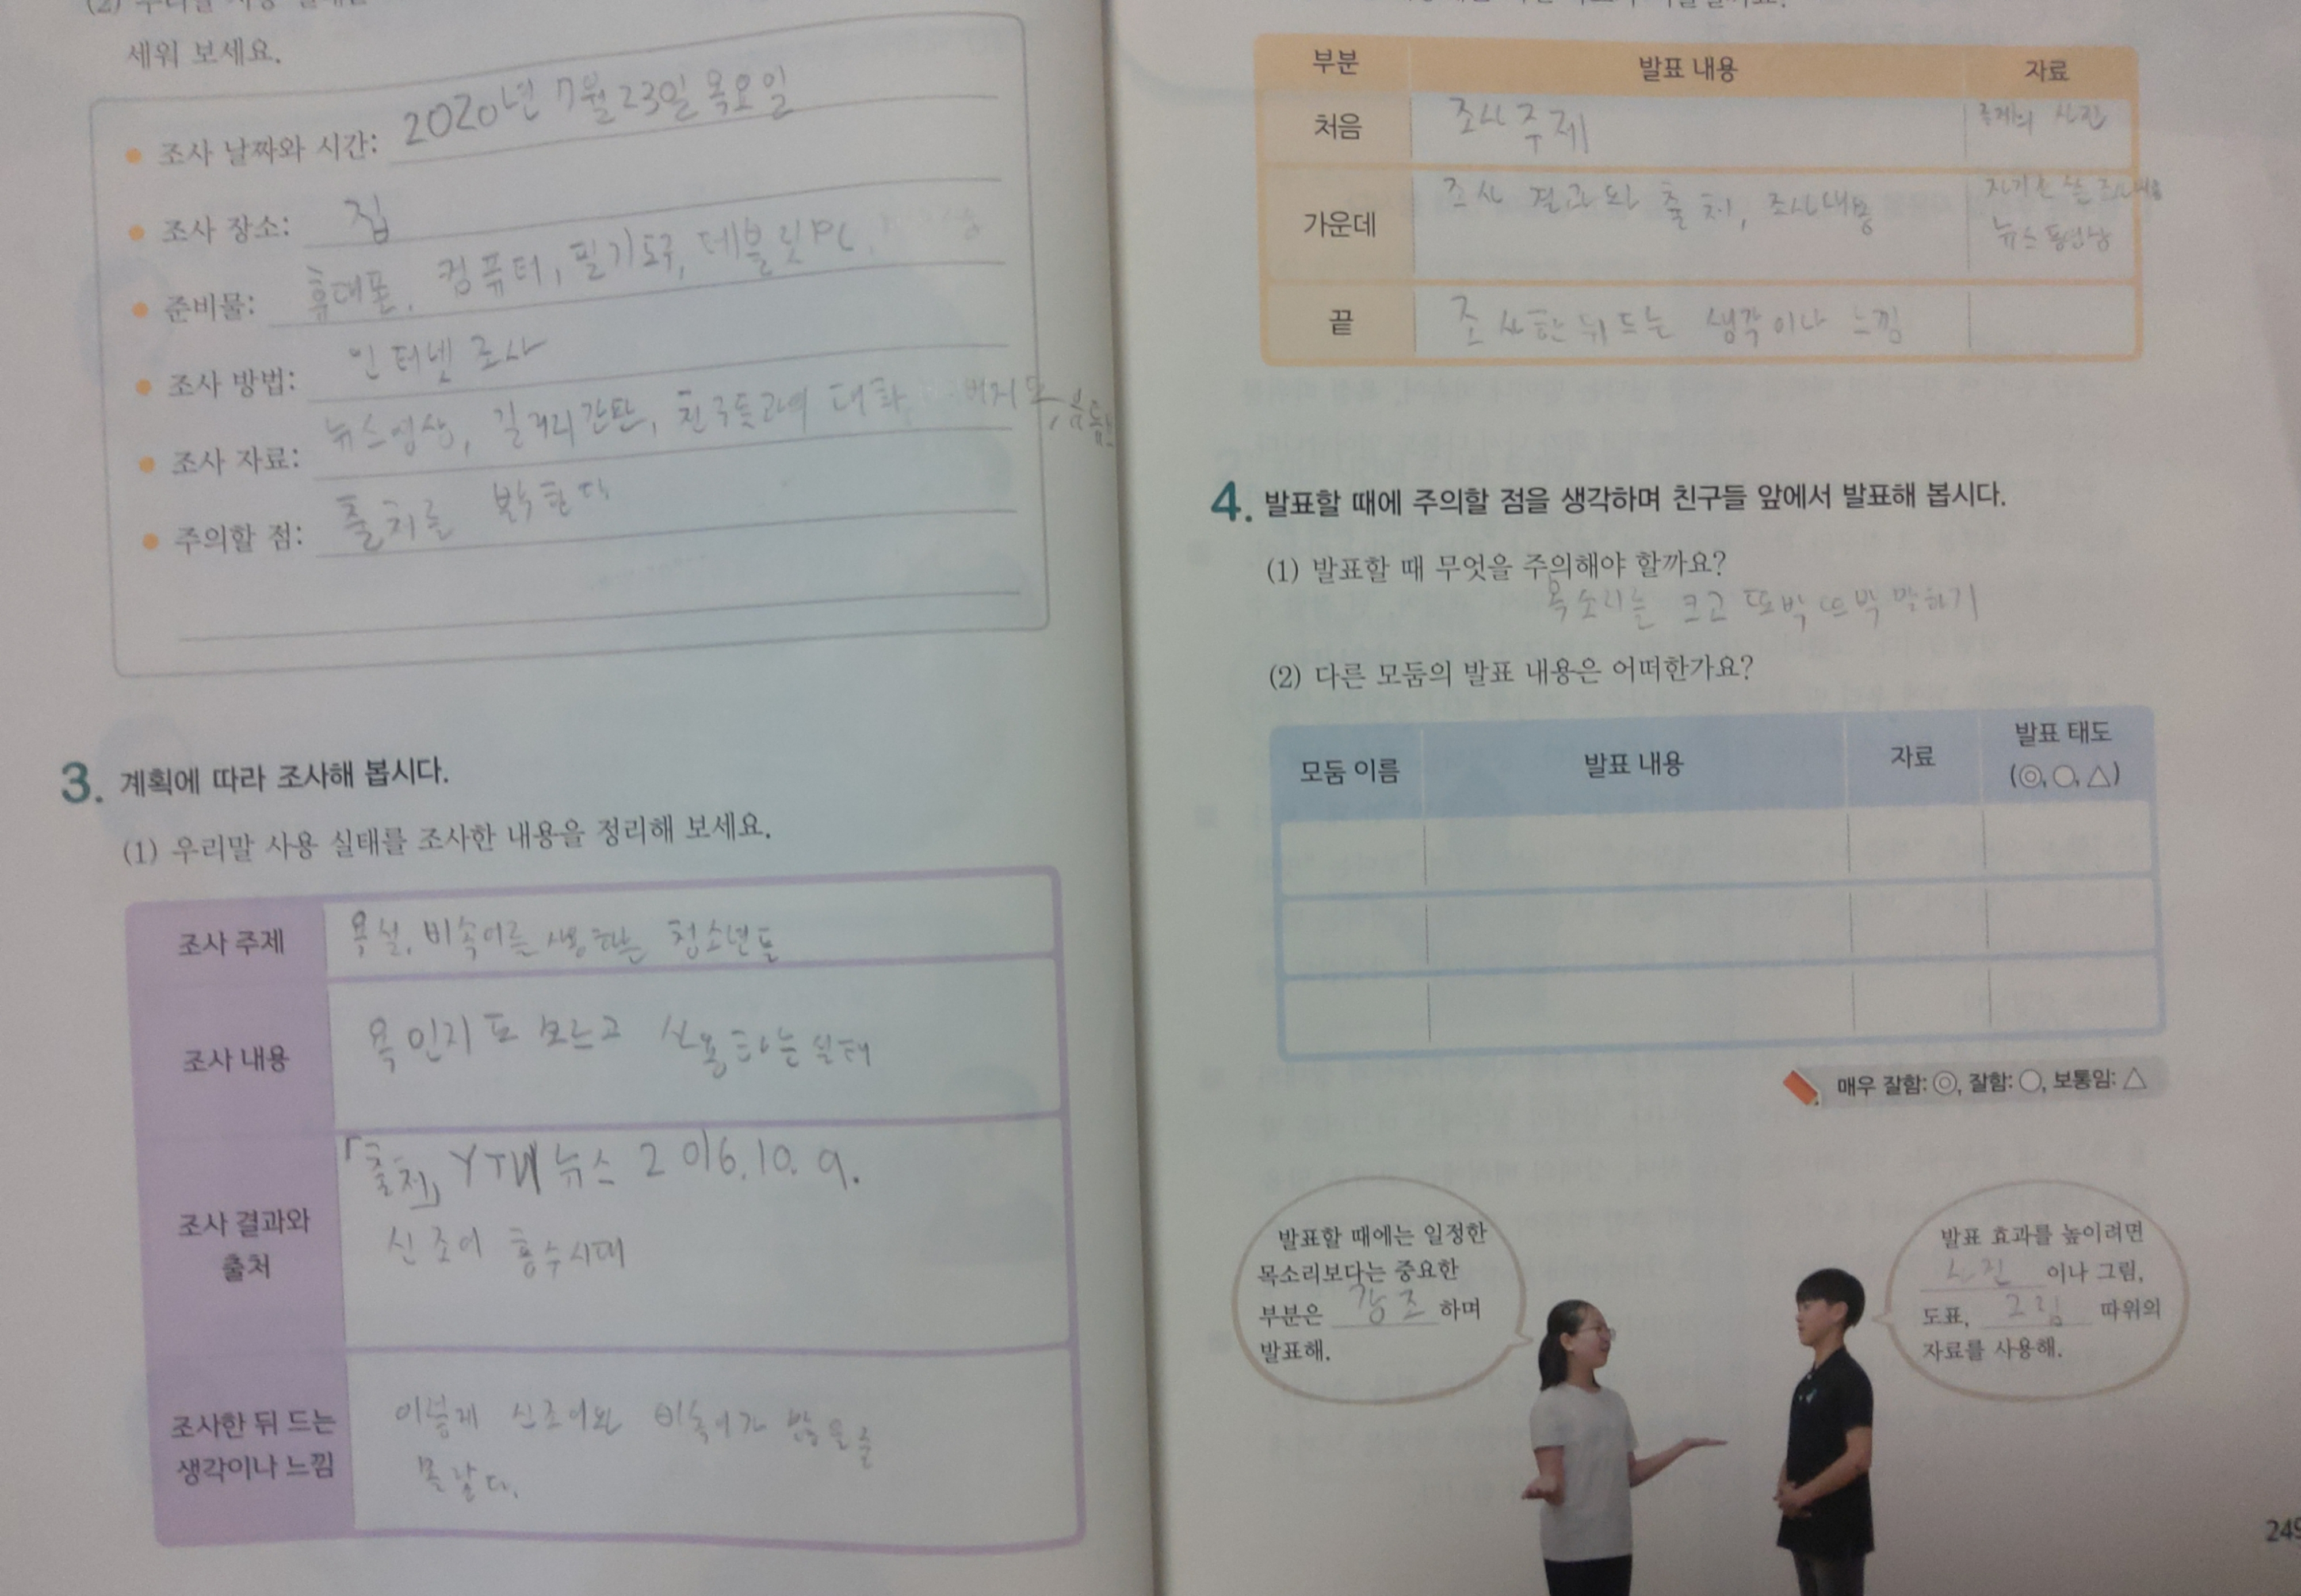 세워 보세요.
• 조사 날짜와 시간: 2020년 7월 23일 목요일
• 조사 장소: 집
• 준비물: 휴대폰, 컴퓨터, 필기도구, 테블릿PC,
• 조사 방법: 인터넷 조사
• 조사 자료: 뉴스영상, 길거리간판, 친구들과의 대화,
• 주의할 점: 출처를 밝힌다
3. 계획에 따라 조사해 봅시다.
(1) 우리말 사용 실태를 조사한 내용을 정리해 보세요.
조사 주제 욕설, 비속어를 사용하는 청소년들
조사 내용 욕인지도 모르고 사용하는 실태
조사 결과와
출처
「출처」 YTN 뉴스 2016.10.9.
신조어 홍수시대
조사한 뒤 드는
생각이나 느낌
이렇게 신조어와 비속어가 많을 줄
몰랐다.
부분 발표 내용 자료
처음 조사 주제 사진
가운데 조사 결과와 출처, 조사내용
뉴스 동영상
끝 조사한 뒤 드는 생각이나 느낌
4. 발표할 때에 주의할 점을 생각하며 친구들 앞에서 발표해 봅시다.
(1) 발표할 때 무엇을 주의해야 할까요?
목소리는 크고 또박또박 말하기
(2) 다른 모둠의 발표 내용은 어떠한가요?
모둠 이름 발표 내용 자료 발표 태도
(◎, ○, △)
매우 잘함: ◎, 잘함: ○, 보통임: △
발표할 때에는 일정한
목소리보다는 중요한
부분은 강조 하며
발표해.
발표 효과를 높이려면
사진 이나 그림,
도표, 그림 따위의
자료를 사용해.
249